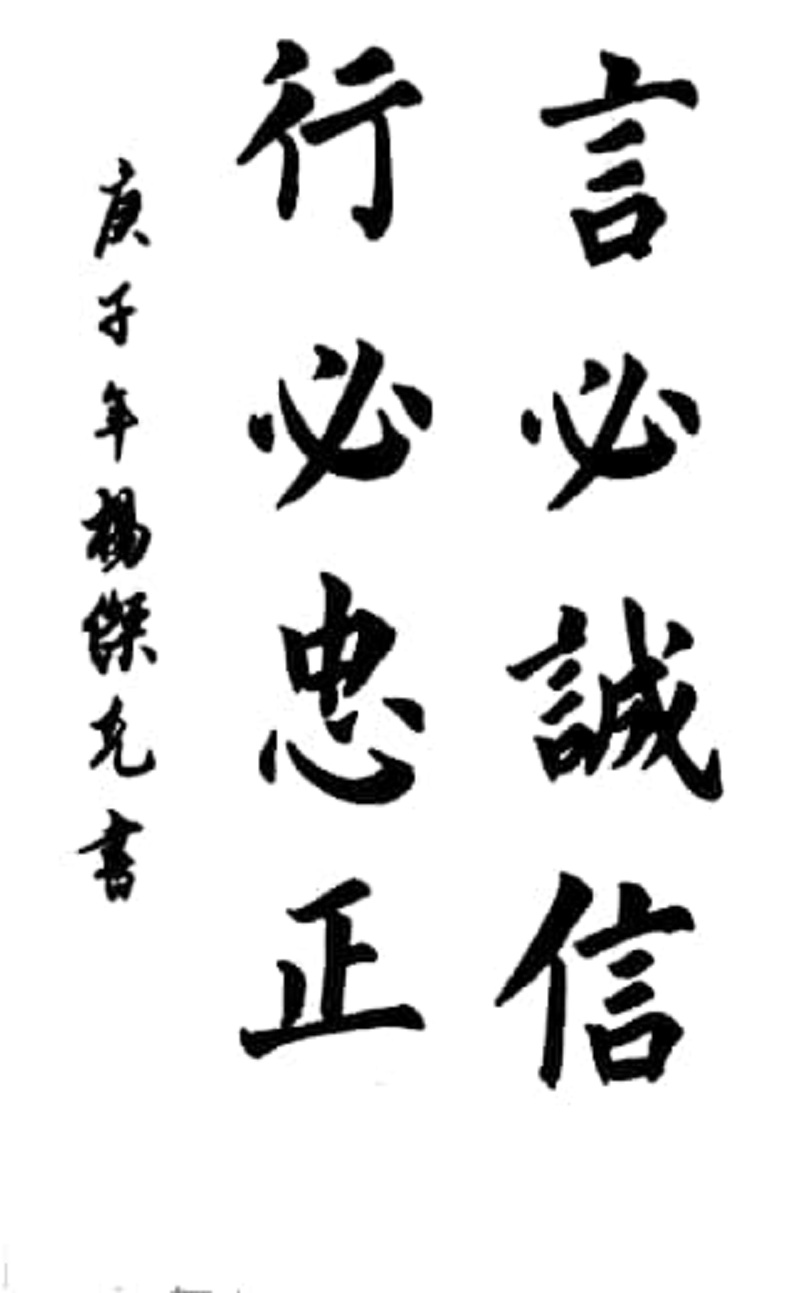 言必誠信
行必忠正
庚子年楊傑克書